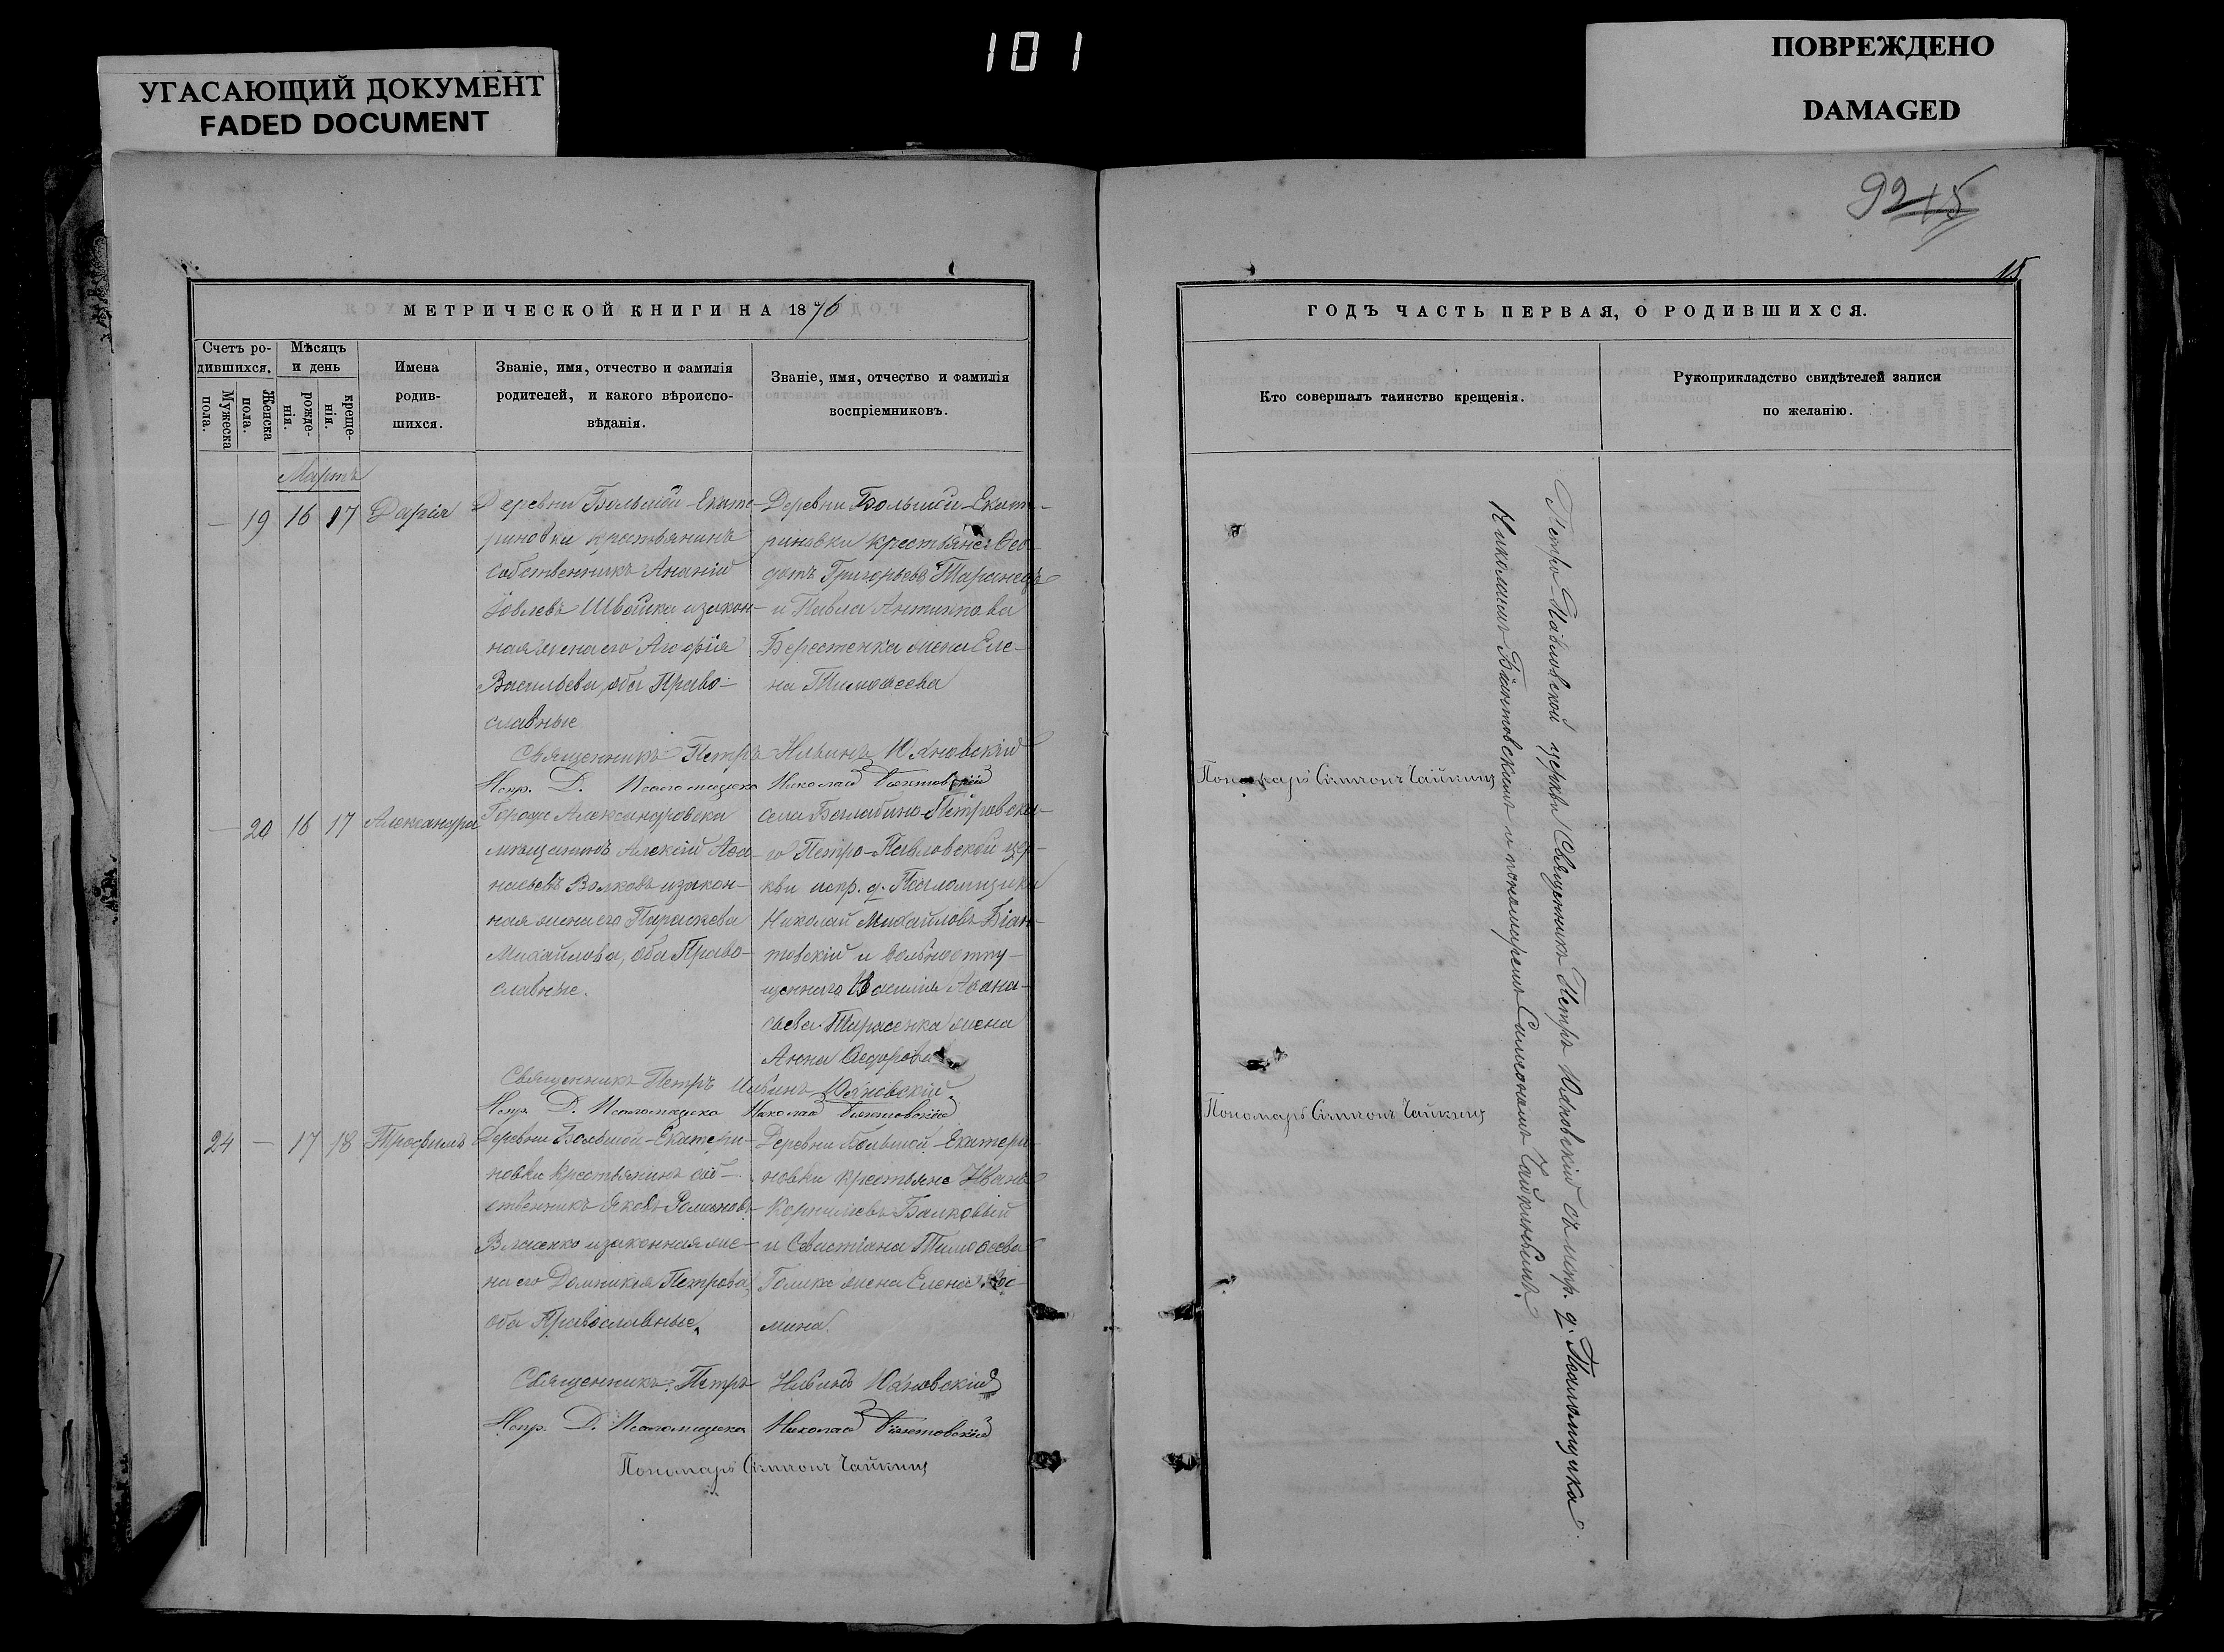 101
УГАСАЮЩИЙ ДОКУМЕНТ
FADED DOCUMENT
ПОВРЕЖДЕНО
DAMAGED
92 15
15
МЕТРИЧЕСКОЙ КНИГИ НА 1876
Счетъ ро-
дившихся.
Мужеска
пола.
Женска
пола.
Мѣсяцъ
и день
рожде-
нія.
креще-
нія.
Имена
родив-
шихся.
Званіе, имя, отчество и фамилія
родителей, и какого вѣроиспо-
вѣданія.
Званіе, имя, отчество и фамилія
воспріемниковъ.
Мартъ
— 19 16 17 Дарія
Деревни Большой-Екате-
риновки крестьянинъ
собственникъ Ананій
Іовлевъ Швайка и закон-
ная жена его
Васильева, оба Право-
славные
Деревни Большой-Екате-
риновки крестьяне: Ѳео-
дотъ Григорьевъ Таранецъ
и Павла Антипова
Берестенка жена Еле-
на Тимоѳеева
Священникъ Петръ Ильинъ Юхновскій
Испр. Д. Псаломщика Николай Біянтовскій
— 20 16 17 Александра
Города Александровска
мѣщанинъ Алексій Аѳа-
насьевъ Волковъ и закон-
ная жена его Параскева
Михайлова, оба Право-
славные.
села Балабино-Петровска-
го Петро-Павловской цер-
кви испр. д. Псаломщика
Николай Михайловъ Біян-
товскій и вольноотпу-
щеннаго Василія Аѳана-
сьева Тарасенка жена
Анна Ѳедорова
Священникъ Петръ Ильинъ Юхновскій.
Испр. Д. Псаломщика Николай Біянтовскій
24 — 17 18 Трофимъ
Деревни Большой-Екатери-
новки крестьянинъ соб-
ственникъ Яковъ Романовъ
Власенко и законная же-
на его Домникія Петрова,
оба Православные.
Деревни Большой-Екатери-
новки крестьяне Иванъ
Корнилевъ Балковый
и Севастіана Тимоѳеева
Голика жена Елена Кос-
мина.
Священникъ Петръ Ильинъ Юхновскій
Испр. Д. Псаломщика Николай Біянтовскій
Пономарь Симеонъ Чайкинъ
ГОДЪ ЧАСТЬ ПЕРВАЯ, О РОДИВШИХСЯ.
Кто совершалъ таинство крещенія.
Рукоприкладство свидѣтелей записи
по желанію.
Петро-Павловской церкви Священникъ Петръ Юхновскій съ испр. д. Псаломщика
Николаемъ Біянтовскимъ и пономаремъ Симеономъ Чайкинымъ.
Пономарь Симеонъ Чайкинъ
Пономарь Симеонъ Чайкинъ